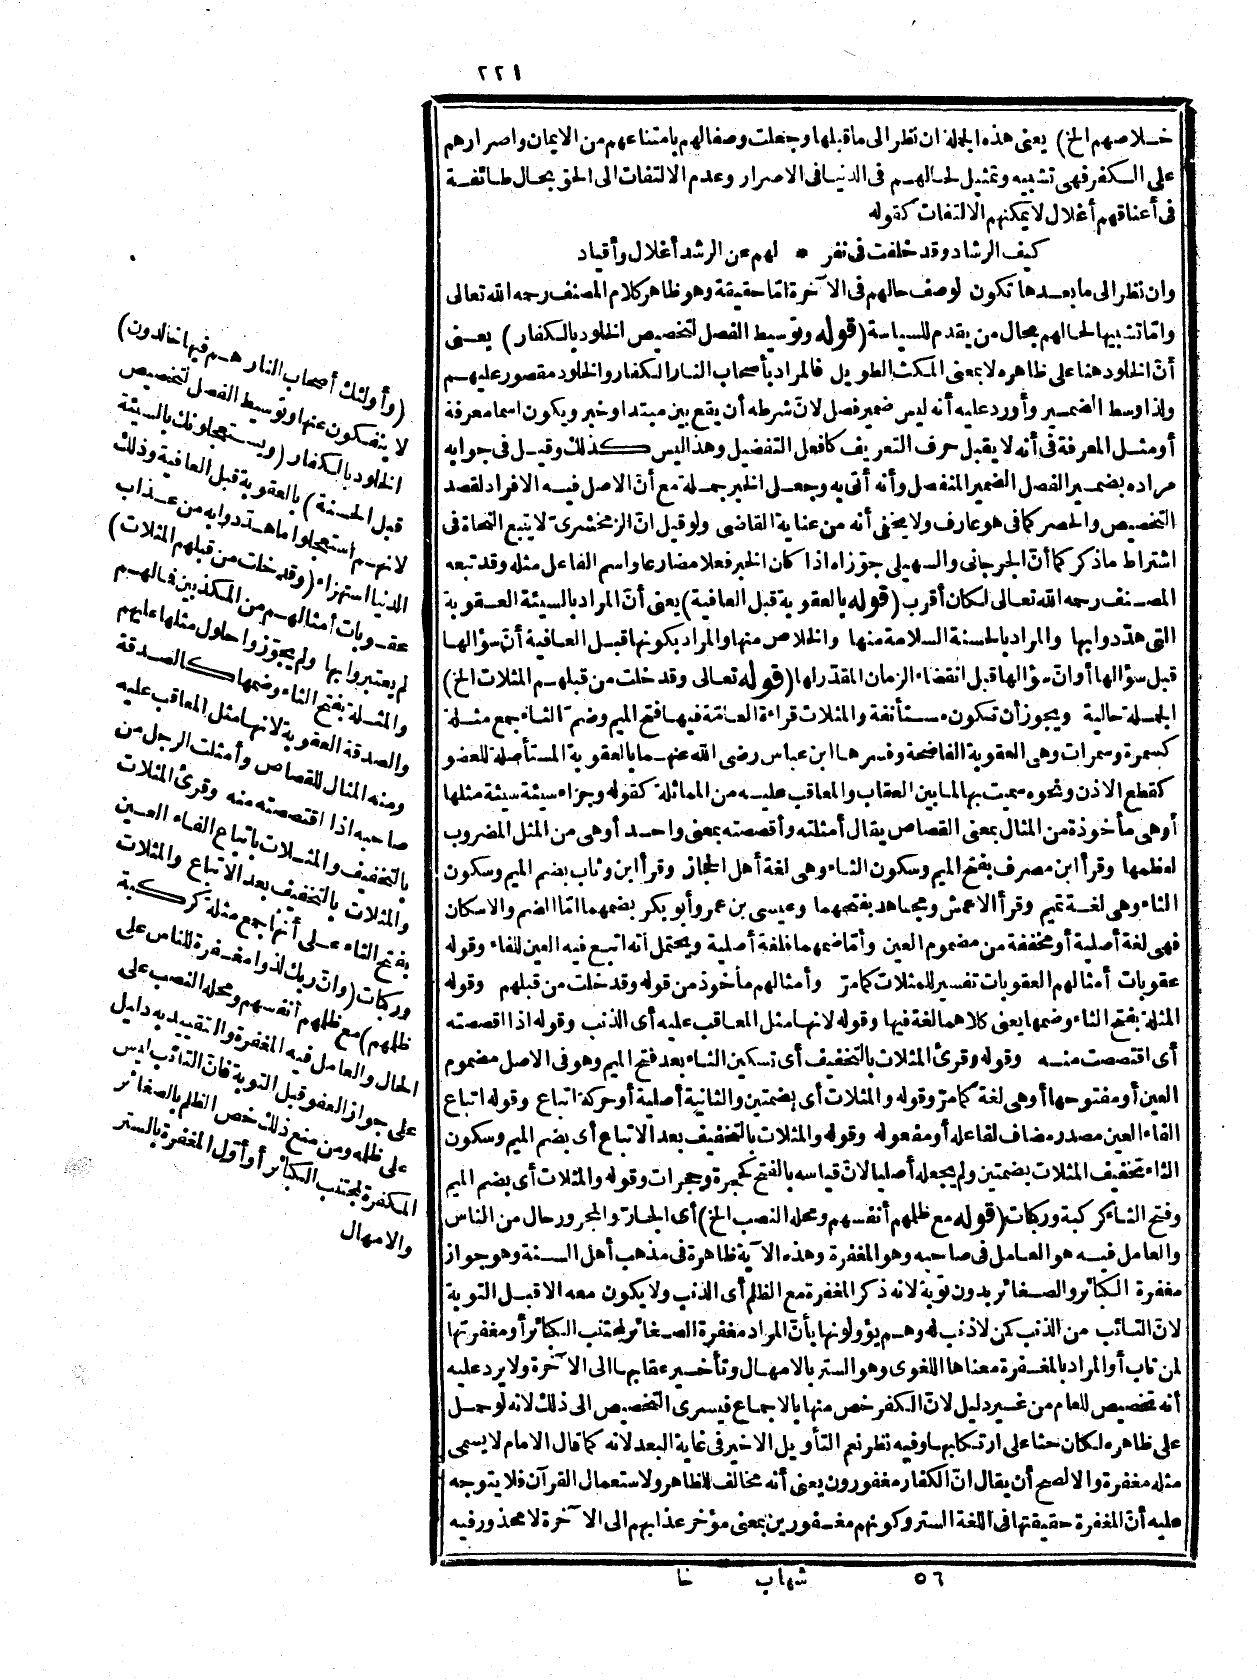 ٢٢١
خلاصهم الخ) يعنى هذه الجملة ان نظر الى ما قبلها وجعلت وصفا لهم بامتناعهم من الايمان واصرارهم
على الكفر فهى تشبيه وتمثيل لحالهم فى الدنيا فى الاصرار وعدم الالتفات الى الحق بحال طائفة
فى أعناقهم أغلال لا يمكنهم الالتفات كقوله
كيف الرشاد وقد خلفت فى نفر * لهم عن الرشد أغلال وأقياد
وان نظر الى ما بعدها تكون لوصف حالهم فى الآخرة امّا حقيقة وهو ظاهر كلام المصنف رحمه الله تعالى
وامّا تشبيها لحالهم بحال من يقدم للسياسة (قوله وتوسيط الفصل لتخصيص الخلود بالكفار) يعنى
أنّ الخلود هنا على ظاهره لا بمعنى المكث الطويل فالمراد بأصحاب النار الكفار والخلود مقصور عليهم
ولذا وسط الضمير وأورد عليه أنه ليس ضمير فصل لانّ شرطه أن يقع بين مبتدا وخبر ويكون اسما معرفة
أو مثل المعرفة فى أنه لا يقبل حرف التعريف كافعل التفضيل وهذا ليس كذلك وقيل فى جوابه
مراده بضمير الفصل الضمير المنفصل وأنه أتى به وجعل الخبر جملة مع أنّ الاصل فيه الافراد لقصد
التخصيص والحصر كما فى هو عارف ولا يخفى أنه من عناية القاضى ولو قيل انّ الزمخشرىّ لا يتبع النحاة فى
اشتراط ما ذكر كما أنّ الجرجانى والسهيلى جوّزاه اذا كان الخبر فعلا مضارعا واسم الفاعل مثله وقد تبعه
المصنف رحمه الله تعالى لكان أقرب (قوله بالعقوبة قبل العافية) يعنى أنّ المراد بالسيئة العقوبة
التى هدّدوا بها والمراد بالحسنة السلامة منها والخلاص منها والمراد بكونها قبل العافية أنّ سؤالها
قبل سؤالها أو انّ سؤالها قبل انقضاء الزمان المقدّر لها (قوله تعالى وقد خلت من قبلهم المثلات الخ)
الجملة حالية ويجوز أن تكون مستأنفة والمثلات قراءة العامّة فيها فتح الميم وضم الثاء جمع مثلة
كسمرة وسمرات وهى العقوبة الفاضحة وفسرها ابن عباس رضى الله عنهما بالعقوبة المستأصلة للعضو
كقطع الاذن ونحوه سميت بها لما بين العقاب والمعاقب عليه من المماثلة كقوله وجزاء سيئة سيئة مثلها
أو هى مأخوذة من المثال بمعنى القصاص يقال أمثلته وأقصصته بمعنى واحد أو هى من المثل المضروب
لعظمها وقرأ ابن مصرف بفتح الميم وسكون الثاء وهى لغة أهل الحجاز وقرأ ابن وثاب بضم الميم وسكون
الثاء وهى لغة تميم وقرأ الاعمش ومجاهد بفتحهما وعيسى بن عمر وأبو بكر بضمهما امّا الضم والاسكان
فهى لغة أصلية أو مخففة من مضموم العين وأمّا ضمهما فلغة أصلية ويحتمل أنه اتبع فيه العين للفاء وقوله
عقوبات أمثالهم العقوبات تفسير للمثلات كما مرّ وأمثالهم مأخوذ من قوله وقد خلت من قبلهم وقوله
المثلة بفتح الثاء وضمها يعنى كلاهما لغة فيها وقوله لانها مثل المعاقب عليه أى الذنب وقوله اذا اقصصته
أى اقتصصت منه وقوله وقرئ المثلات بالتخفيف أى تسكين الثاء بعد فتح الميم وهو فى الاصل مضموم
العين أو مفتوحها أو هى لغة كما مرّ وقوله والمثلات أى بضمتين والثانية أصلية أو حركة اتباع وقوله اتباع
الفاء العين مصدر مضاف لفاعله أو مفعوله وقوله والمثلات بالتخفيف بعد الاتباع أى بضم الميم وسكون
الثاء تخفيف المثلات بضمتين ولم يجعله أصليا لانّ قياسه بالفتح كحجرة وحجرات وقوله والمثلات أى بضم الميم
وفتح الثاء كركبة وركبات (قوله مع ظلمهم أنفسهم ومحله النصب الخ) أى الجارّ والمجرور حال من الناس
والعامل فيه هو العامل فى صاحبه وهو المغفرة وهذه الآية ظاهرة فى مذهب أهل السنة وهو جواز
مغفرة الكبائر والصغائر بدون توبة لانه ذكر المغفرة مع الظلم أى الذنب ولا يكون معه الا قبل التوبة
لانّ التائب من الذنب كمن لا ذنب له وهم يؤولونها بأنّ المراد مغفرة الصغائر لمجتنب الكبائر أو مغفرتها
لمن تاب أو المراد بالمغفرة معناها اللغوى وهو الستر بالامهال وتأخير عقابها الى الآخرة ولا يرد عليه
أنه تخصيص للعام من غير دليل لانّ الكفر خص منها بالاجماع فيسرى التخصيص الى ذلك لانه لو حمل
على ظاهره لكان حثا على ارتكابها وفيه نظر نعم التأويل الاخير فى غاية البعد لانه كما قال الامام لا يسمى
مثله مغفرة والا لصح أن يقال انّ الكفار مغفورون يعنى أنه مخالف للظاهر ولاستعمال القرآن فلا يتوجه
عليه أنّ المغفرة حقيقتها فى اللغة الستر وكونهم مغفورين بمعنى مؤخر عذابهم الى الآخرة لا محذور فيه
(وأولئك أصحاب النار هم فيها خالدون)
لا ينفكون عنها وتوسيط الفصل لتخصيص
الخلود بالكفار (ويستعجلونك بالسيئة
قبل الحسنة) بالعقوبة قبل العافية وذلك
لانهم استعجلوا ما هدّدوا به من عذاب
الدنيا استهزاء (وقد خلت من قبلهم المثلات)
عقوبات أمثالهم من المكذبين فما لهم
لم يعتبروا بها ولم يجوّزوا حلول مثلها عليهم
والمثلة بفتح الثاء وضمها كالصدقة
والصدقة العقوبة لانها مثل المعاقب عليه
ومنه المثال للقصاص وأمثلت الرجل من
صاحبه اذا اقتصصته منه وقرئ المثلات
بالتخفيف والمثلات باتباع الفاء العين
والمثلات بالتخفيف بعد الاتباع والمثلات
بفتح الثاء على أنها جمع مثلة كركبة
وركبات (وانّ ربك لذو مغفرة للناس على
ظلمهم) مع ظلمهم أنفسهم ومحله النصب على
الحال والعامل فيه المغفرة والتقييد به دليل
على جواز العفو قبل التوبة فانّ التائب ليس
على ظلمه ومن منع ذلك خص الظلم بالصغائر
المكفرة لمجتنب الكبائر أو أوّل المغفرة بالستر
والامهال
٥٦ شهاب خا